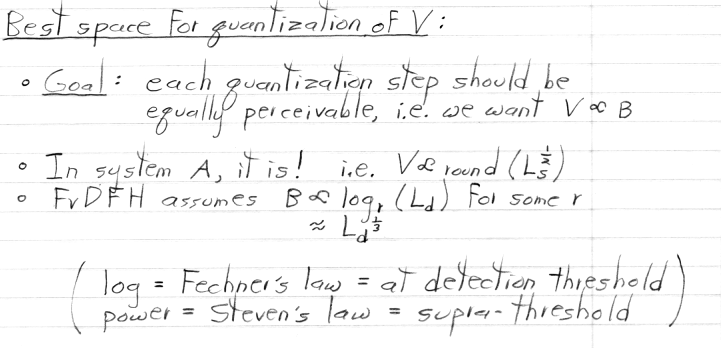 Best space for quantization of V:
• Goal: each quantization step should be
equally perceivable, i.e. we want V ∝ B
• In system A, it is! i.e. V ∝ round (L_s^{1/3})
• FvDFH assumes B ∝ log_r (L_d) for some r
≈ L_d^{1/3}
( log = Fechner's law = at detection threshold
power = Steven's law = supra-threshold )